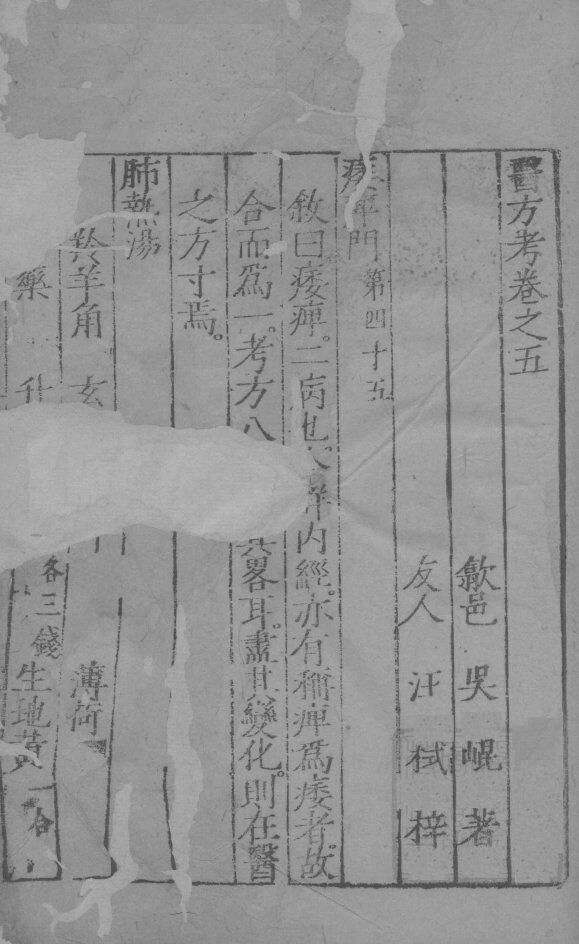 醫方考卷之五
歙邑 吳崐 著
友人 汪栻 梓
痿痺門 第四十五
敘曰痿痺二病也詳內經。亦有稱痺爲痿者。故
合而爲一。考方八其畧耳。盡其變化。則在醫
之方寸焉。
肺熱湯
羚羊角 玄 薄荷
藥 升 各三錢 生地黃一合